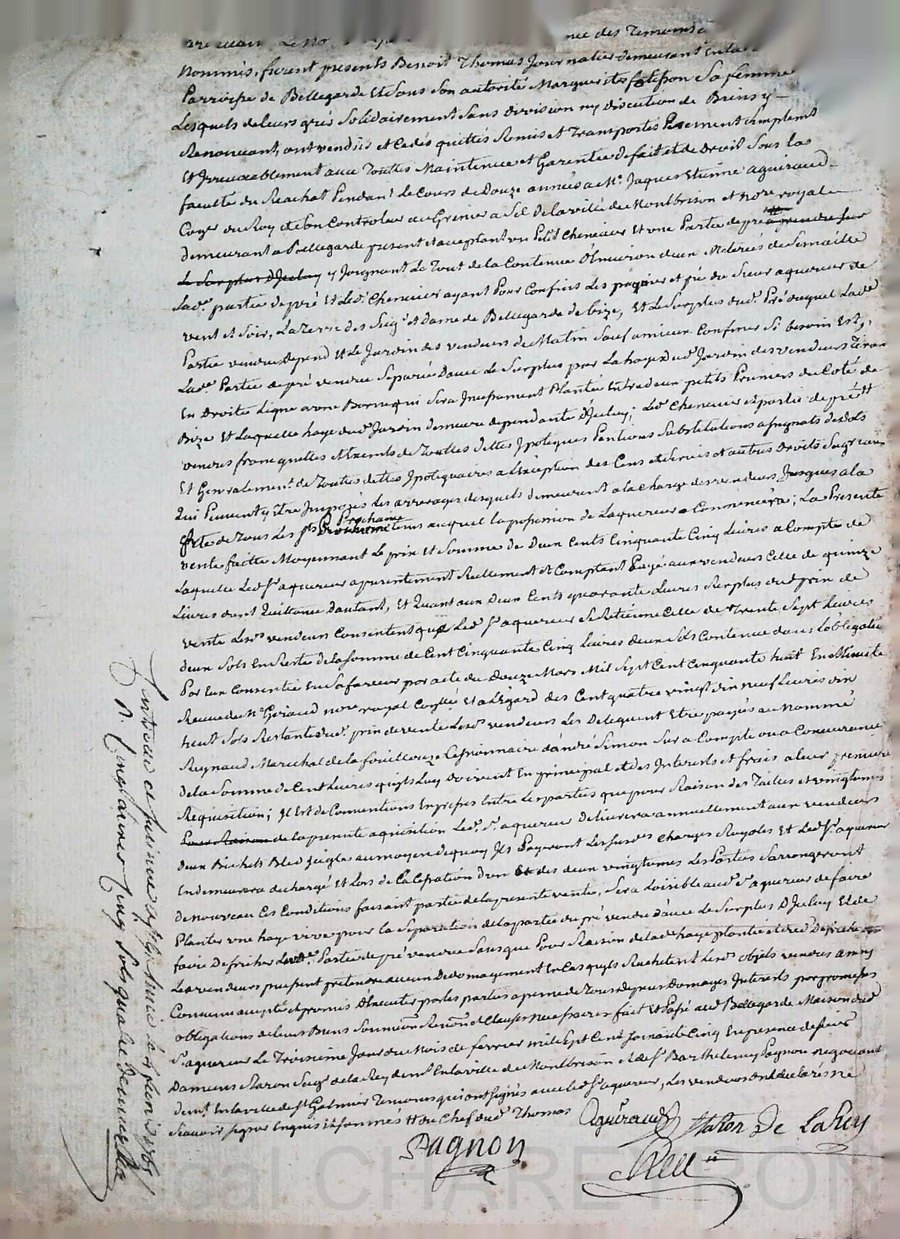 nce des Temoins
Nommés, furent presents Benoit Thomas Journalier demeurant en la
Parroisse de Bellegarde Et Sous Son autorité Marguerite Sa femme
Lesquels de leurs grés Solidairement Sans Division ny discution de Biens y
Renoncant, ont vendus et Cedés quittés Remis et Transportés Purement simplemt
Et Irrevocablement avec Toutes Maintenue et Garentie de fait et de Droit Sous la
faculté du Reachat Pendant le Cours de Douze années a Mr. Jaques Etienne aguiraud
Coner du Roy et Son Controleur au Grenier a Sel de la ville de Montbrison et nore royal
demeurant a Bellegarde present et acceptant un Petit Chenevier Et une Partie de pré a prendre sur
Le Surplus d'Jceluy y Joignant le Tout de la Contenue d'Environ deux Méterées de Semaille
Lade. partie de pré Et Led. Chenevier ayant Pour Confins Les et pré du Sieur aquereur de
vent et Soir, La Terre des Seigr. et Dame de Bellegarde de bize, Et Le Surplus dud. Pré duquel Lade
Partie vendue depend Et Le Jardin des vendeurs de Matin Sauf amieux Confiner Si besoin Est,
Lade. Partie de pré vendue Separée Davec Le Surplus par La haye dud. Jardin des vendeurs Tirant
En Droite Ligne a une Borne qui Sera Incessament Plantée Entre deux petits Pruniers du Coté de
Bize Et Laquelle haye dud. Jardin demeure dependante d'Jceluy; Led. Chenevier et partie de pré
vendus francs quittes et Exempts de Touttes dettes Ypoteques Pentions Substitutions apignats debots
Et Generalement de Toutes dettes Ypotiquaires a L'exception des Cens et Servis et autres Droits Seigrieuriaux
Qui Peuvent y Etre Imposés les arrerages desquels demeurent a la charge des vendeurs Jusques a la
fette de Tous Les Sts Prochaine tems auquel la possession de Laquereur a Commencera; La Presente
vente faitte Moyennant Le prix et Somme de Deux Cents Cinquante Cinq Livres a Compte de
Laquelle Led. Sr. aquereur a presentement Reellement et Comptant Payé aux vendeurs Celle de quinze
Livres dont Quittance dautant, et Quant aux Deux Cents quarante Livres Surplus du prix de
vente Lesd. vendeurs Consentent que Led. Sr. aquereur Se Retienne Celle de Trente Sept Livres
deux Sols En Reste de la Somme de Cent Cinquante Cinq Livres deux Sols Contenue dans L'obligation
Par Eux Consentie En Sa faveur par acte du Douze Mars Mil Sept Cent Cinquante huit En Minute
Reçue du Me. Geriaud nore royal Et a L'égard des Cent quatre vingt dix neuf Livres dix
huit Sols Restants dud. prix de vente Lesd. vendeurs Les Deleguent Etre payés au Nommé
Reynaud Marechal de la fouillouze Cessionnaire d'andré Simon Sur a Compte ou a Concurrence
de la Somme de Cent Livres quils Luy doivent En principal et des Interests et frais a leur premiere
Requisition; Il Est de Conventions Expresses Entre Les parties que pour Raison des Tailles et vingtiemes
de la presente aquisition Led. Sr. aquereur delivrera annuellement aux vendeurs
deux Bichets Bled Seigle au moyen de quoy Ils Payeront Les susd. Charges Royales Et Led. Sr. aquereur
En demeurera dechargé Et Lors de La Cessation d'un Et des deux vingtiemes Les Parties Sarrangeront
de nouveau Ces Conditions faisant partie de la presente vente, Sera Loisible aud. Sr. aquereur de faire
Planter une haye vive pour la Separation de la partie du pré vendue davec Le Surplus d'Jceluy Et de
faire Defricher Lade. Partie de pré vendue Sans que Pour Raison de lade. haye plantée
Les vendeurs puissent pretendre aucun Dedomagement En Cas quils Rachetent Lesd. objets vendus ainsy
Convenu accepté et promis Executer par les parties a peine de Tous depens Domages Interests par promesses
obligations de leurs Biens Soumions Renons et Clauses Necessaires fait et Passé aud. Bellegarde Maison dud.
Sr. aquereur Le Troisieme Jour du Mois de fevrier mil Sept Cent Soixante Cinq En presence de Sieur
Damiens Staron Seigr. de la Rey demt. En la ville de Montbrison et de Sr. Barthelemy Pagnon negociant
demt. En la ville de St Galmier Temoins qui ont Signés avec led. Sr. aquereur, Les vendeurs ont declarés ne
Scavoir signer Enquis et Sommés du Chef dud. Thomas
aguiraud Staron De LaRey
Pagnon
St Galmier le 11 fevrier 1765
R. Cinq livres Cinq Sols quatre deniers
Pascal CHAREYRON